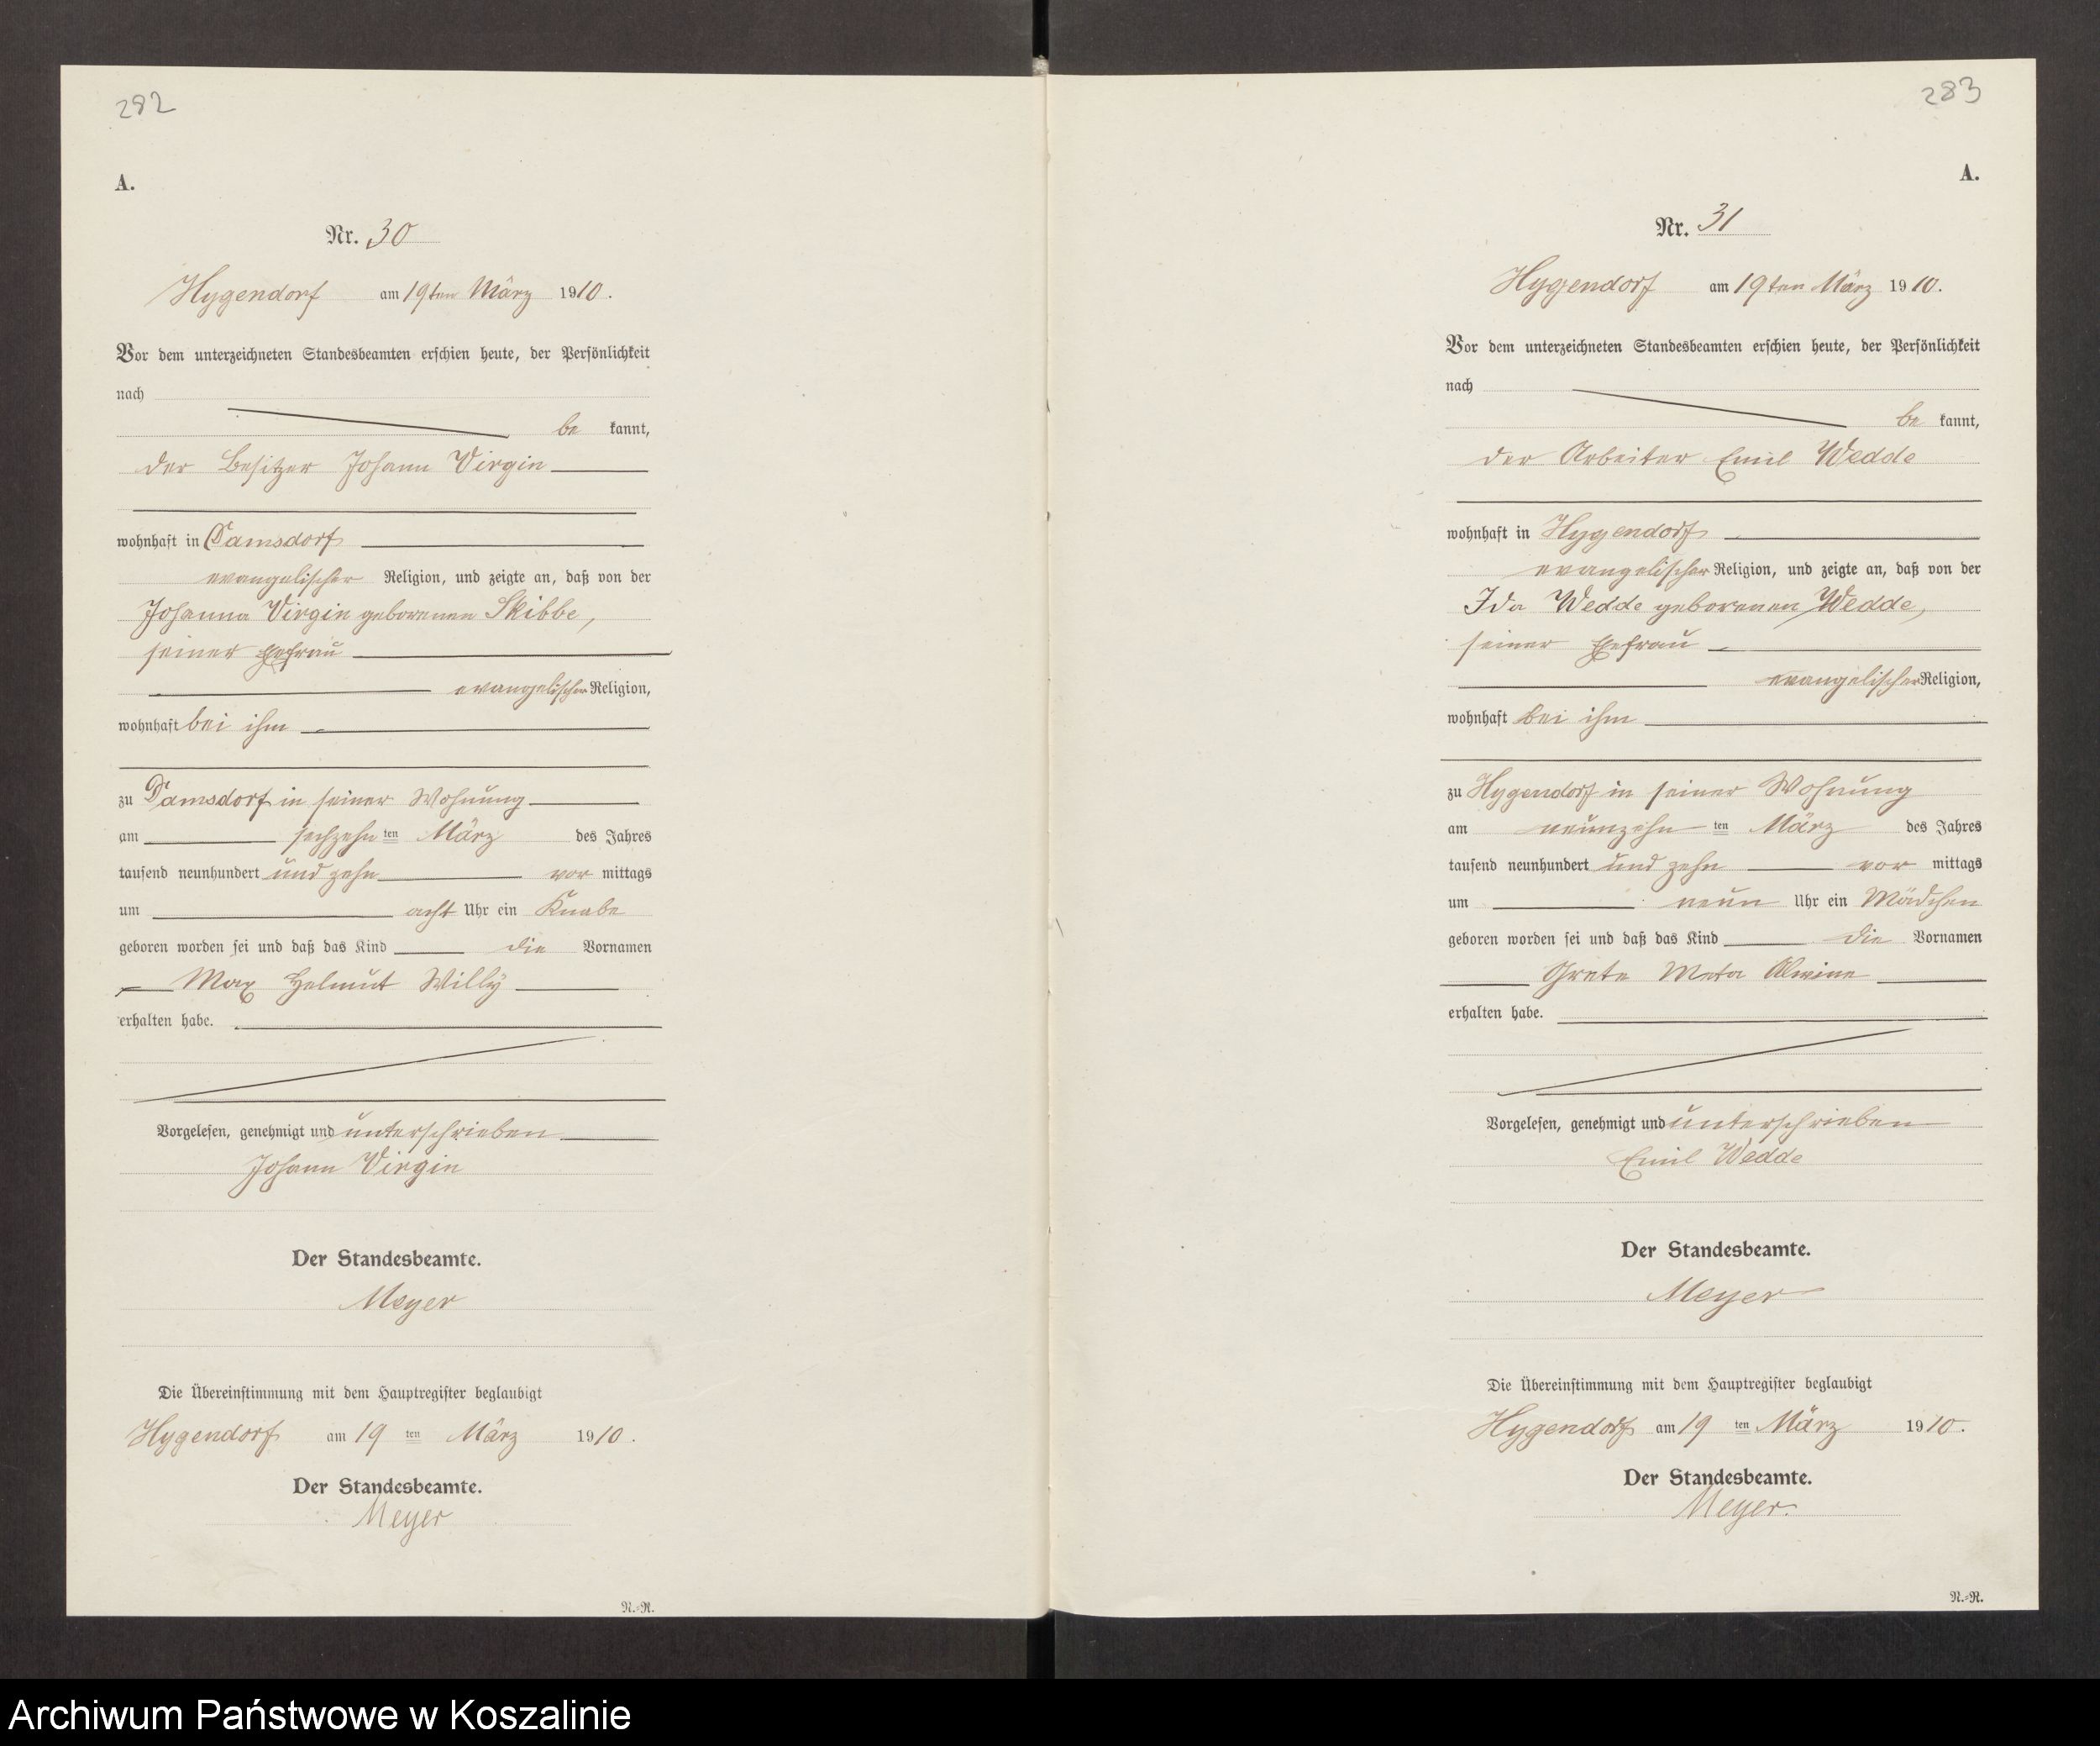 282
A.
Nr. 30
Hygendorf am 19ten März 1910.
Vor dem unterzeichneten Standesbeamten erschien heute, der Persönlichkeit
nach
be kannt,
der Besitzer Johann Virgin
wohnhaft in Damsdorf
evangelischer Religion, und zeigte an, daß von der
Johanna Virgin geborenen Skibbe,
seiner Ehefrau
evangelischer Religion,
wohnhaft bei ihm
zu Damsdorf in seiner Wohnung
am sechzehn ten März des Jahres
tausend neunhundert und zehn vor mittags
um acht Uhr ein Knabe
geboren worden sei und daß das Kind die Vornamen
Max Helmut Willy
erhalten habe.
Vorgelesen, genehmigt und unterschrieben
Johann Virgin
Der Standesbeamte.
Meyer
Die Übereinstimmung mit dem Hauptregister beglaubigt
Hygendorf am 19 ten März 1910.
Der Standesbeamte.
Meyer
N.=R.
283
A.
Nr. 31
Hygendorf am 19ten März 1910.
Vor dem unterzeichneten Standesbeamten erschien heute, der Persönlichkeit
nach
be kannt,
der Arbeiter Emil Wedde
wohnhaft in Hygendorf
evangelischer Religion, und zeigte an, daß von der
Ida Wedde geborenen Wedde,
seiner Ehefrau
evangelischer Religion,
wohnhaft bei ihm
zu Hygendorf in seiner Wohnung
am neunzehn ten März des Jahres
tausend neunhundert und zehn vor mittags
um neun Uhr ein Mädchen
geboren worden sei und daß das Kind die Vornamen
Grete Meta Alwine
erhalten habe.
Vorgelesen, genehmigt und unterschrieben
Emil Wedde
Der Standesbeamte.
Meyer
Die Übereinstimmung mit dem Hauptregister beglaubigt
Hygendorf am 19 ten März 1910.
Der Standesbeamte.
Meyer.
N.=R.
Archiwum Państwowe w Koszalinie